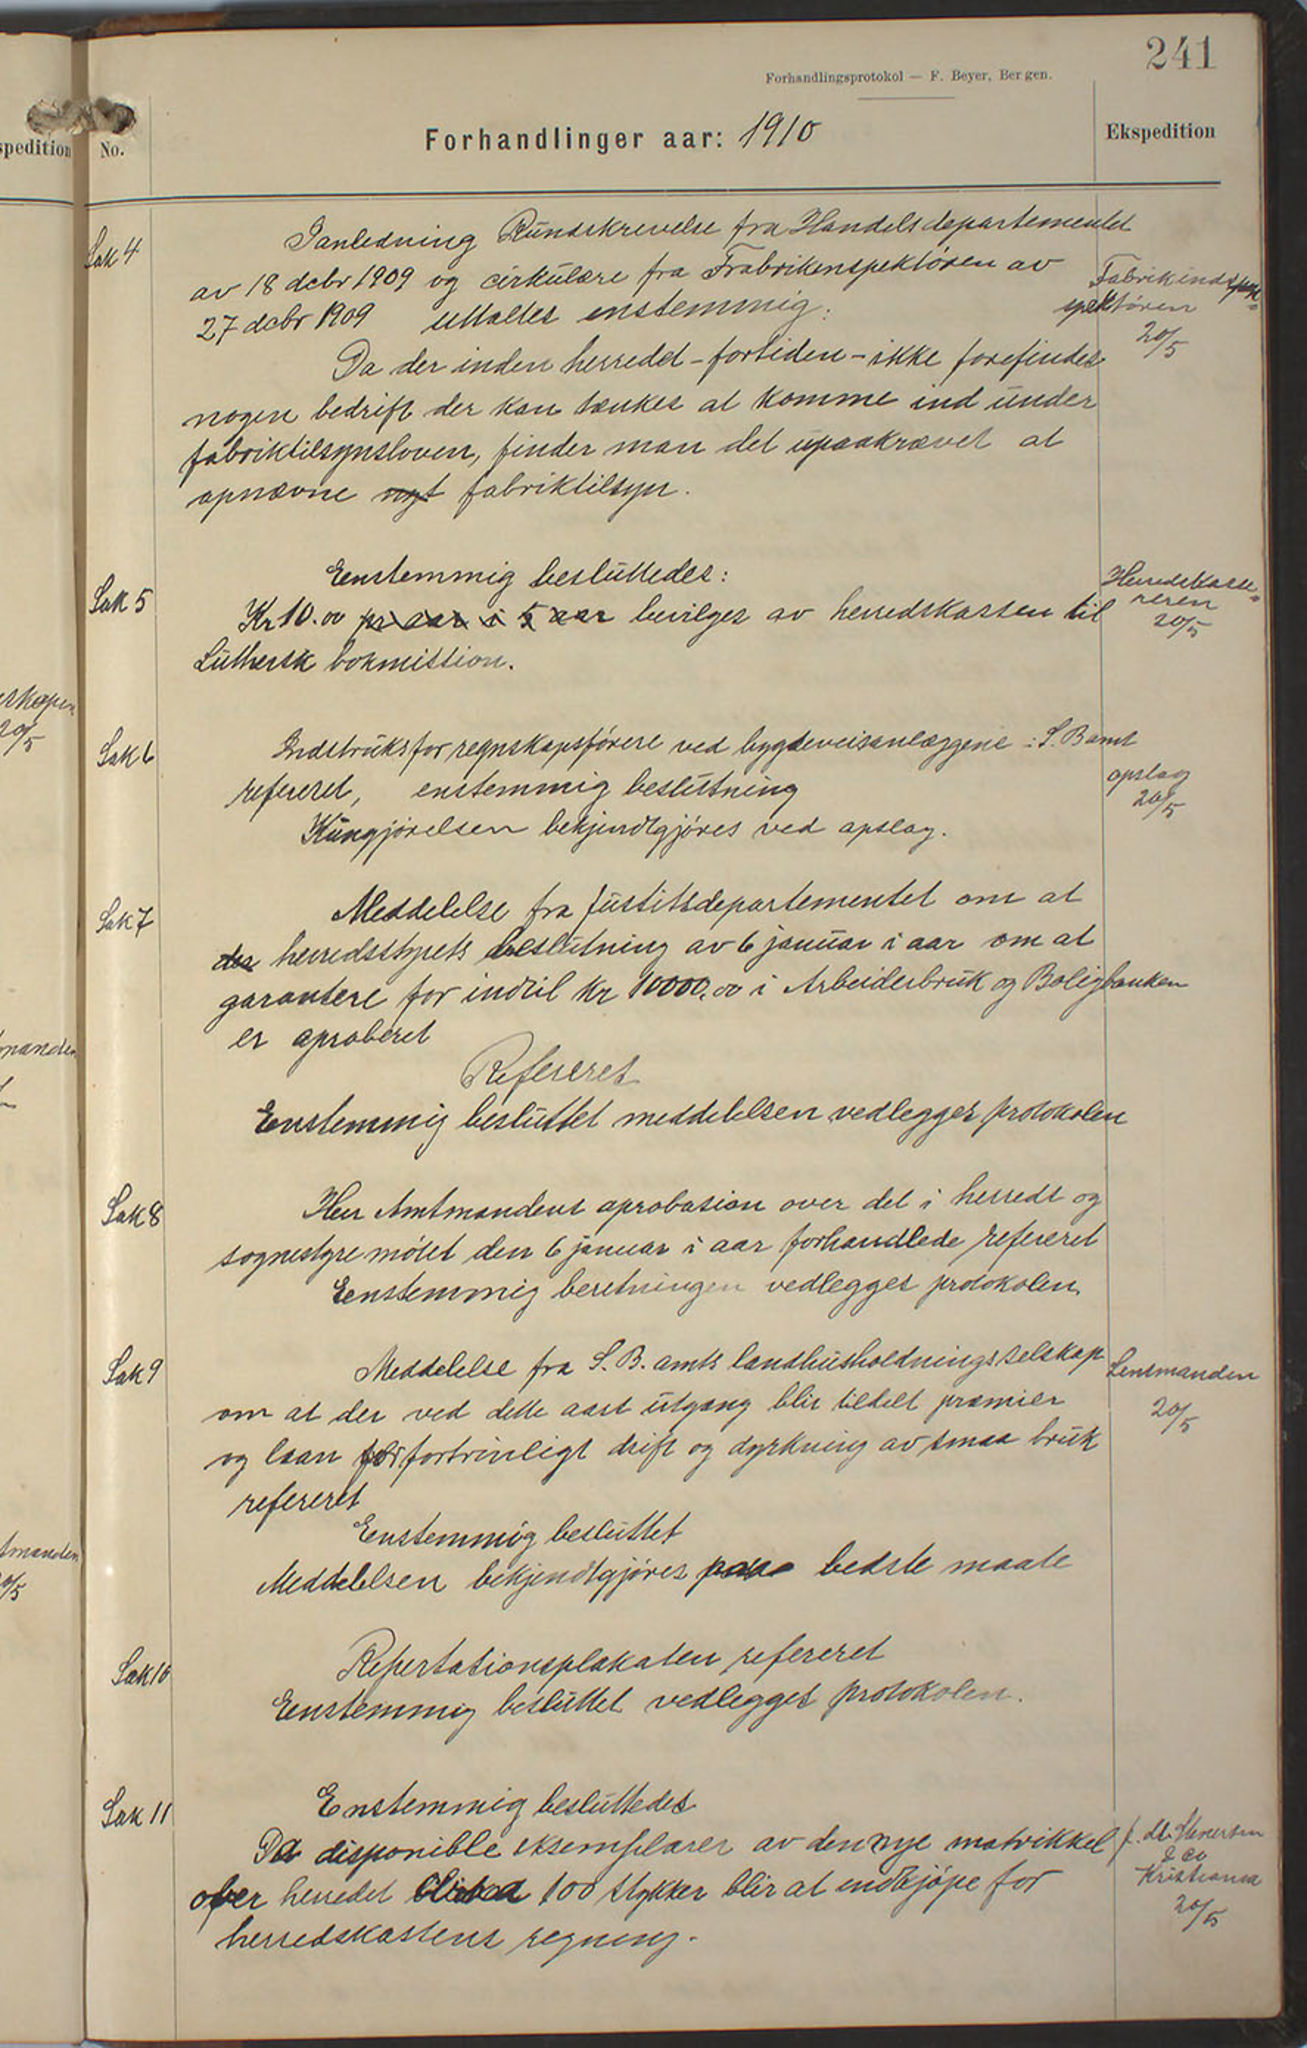 241
Forhandlingsprotokol — F. Beyer, Bergen.
Forhandlinger aar: 1910
Ekspedition
spedition
No.
Sak 4
Ianledning Rundskrevelse fra Handelsdepartementet
av 18 dcbr 1909 og cirkulære fra Frabrikenspektøren av
27 dcbr 1909 uttaltes enstemmig:
Fabrikindsp=
spektøren
20/5
Da der inden herredet - fortiden - ikke forefindes
nogen bedrift der kan tænkes at komme ind under
fabriktilsynsloven, finder man det upaakrævet at
opnævne nyt fabriktilsyn.
Sak 5
Eenstemmig besluttedes:
Kr 10.00 pr aar i 5 aar bevilges av herredskassen til
Luthersk bokmission.
Herredskasse=
reren
20/5
Sak 6
Indstruks for regnskapsførere ved bygdeveisanlæggene i S. B amt
refereret, enstemmig beslutning
Kungjørelsen bekjendtgjøres ved opslag.
opslag
20/5
Sak 7
Meddelelse fra Justitsdepartementet om at
des herredstyrets beslutning av 6 januar i aar om at
garantere for indtil kr 10000.00 i Arbeiderbruk og Boligbanken
er aproberet
Refereret
Eenstemmig besluttet meddelelsen vedlegges protokolen
Sak 8
Herr Amtmandens aprobasion over det i herreds og
sognestyremøtet den 6 januar i aar forhandlede refereret
Eenstemmig beretningen vedlegges protokolen
Sak 9
Meddelelse fra S. B. amts landhusholdningsselskap
om at der ved dette aars utgang blir tildelt præmier
og laan for fortrinligt drift og dyrkning av smaa bruk
refereret
Lensmanden
20/5
Eenstemmig besluttet
Meddelelsen bekjendtgjøres paa bedste maate
Sak 10
Repertationsplakaten refereret
Eenstemmig besluttet vedlegges protokolen.
Sak 11
Enstemmig besluttedes
Da disponible eksemplarer av den nye matrikkel
over herredet 100 stykker blir at indkjøpe for
herredskassens regning.
& co
Kristiania
20/5
erskapen
20/5
manden
tmanden
0/5